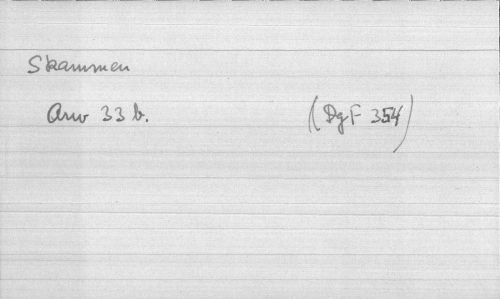 Skammen
Arw 33 b. (DgF 354)